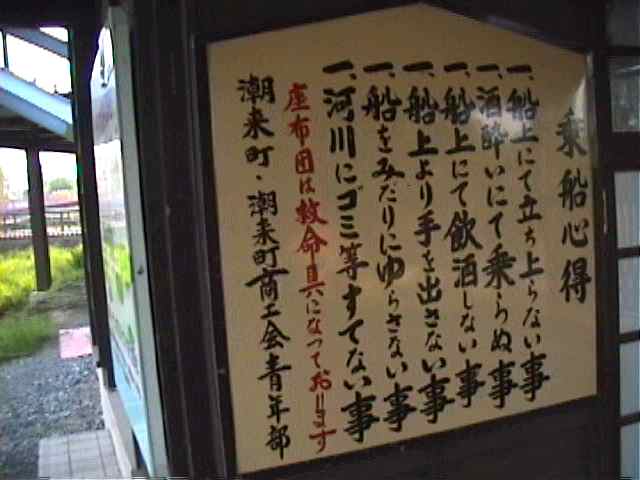 乗船心得
一、船上にて立ち上らない事
一、酒酔いにて乗らぬ事
一、船上にて飲酒しない事
一、船上より手を出さない事
一、船をみだりにゆらさない事
一、河川にゴミ等すてない事
座布団は救命具になっております
潮来町・潮来町商工会青年部